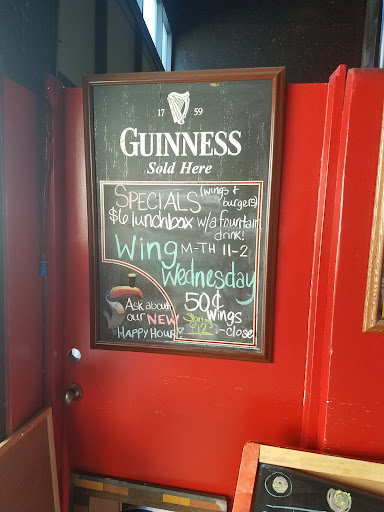 17 59
GUINNESS
Sold Here
SPECIALS (wings + burgers)
$6 lunchbox w/a fountain drink!
M-TH 11-2
Wing Wednesday
50¢ Wings
-close
Ask about
our NEW
HAPPY HOUR